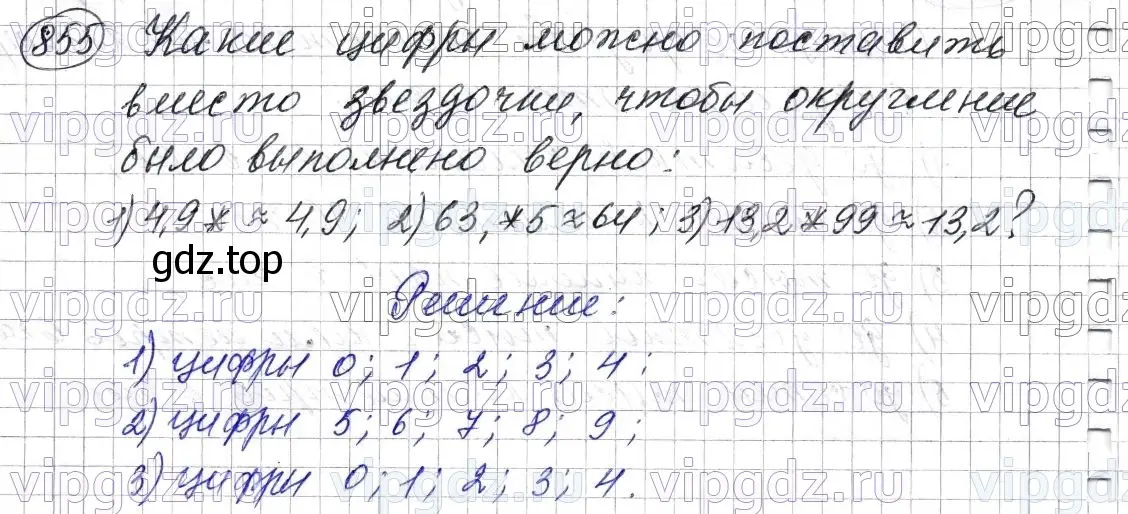 855 Какие цифры можно поставить
вместо звездочки, чтобы округление
было выполнено верно:
1) 4,9* ≈ 4,9; 2) 63,*5 ≈ 64; 3) 13,2*99 ≈ 13,2?
gdz.top
Решение:
1) цифры 0; 1; 2; 3; 4;
2) цифры 5; 6; 7; 8; 9;
3) цифры 0; 1; 2; 3; 4.